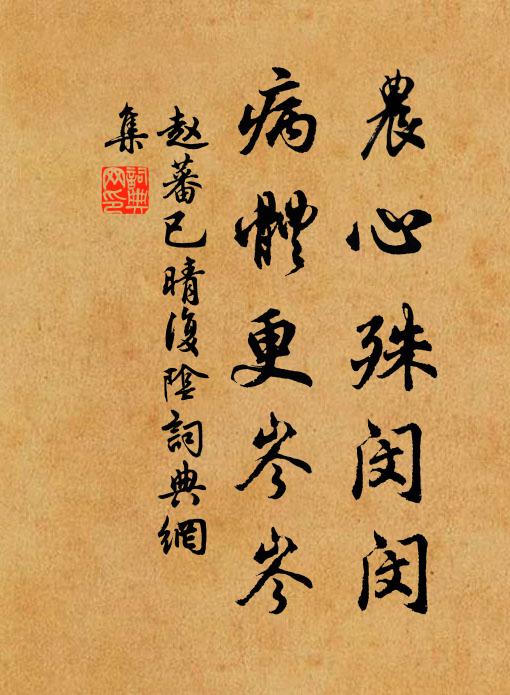 農心殊闵闵
病體更岑岑
赵蕃已晴復陰詞典網
集
詞典
网印